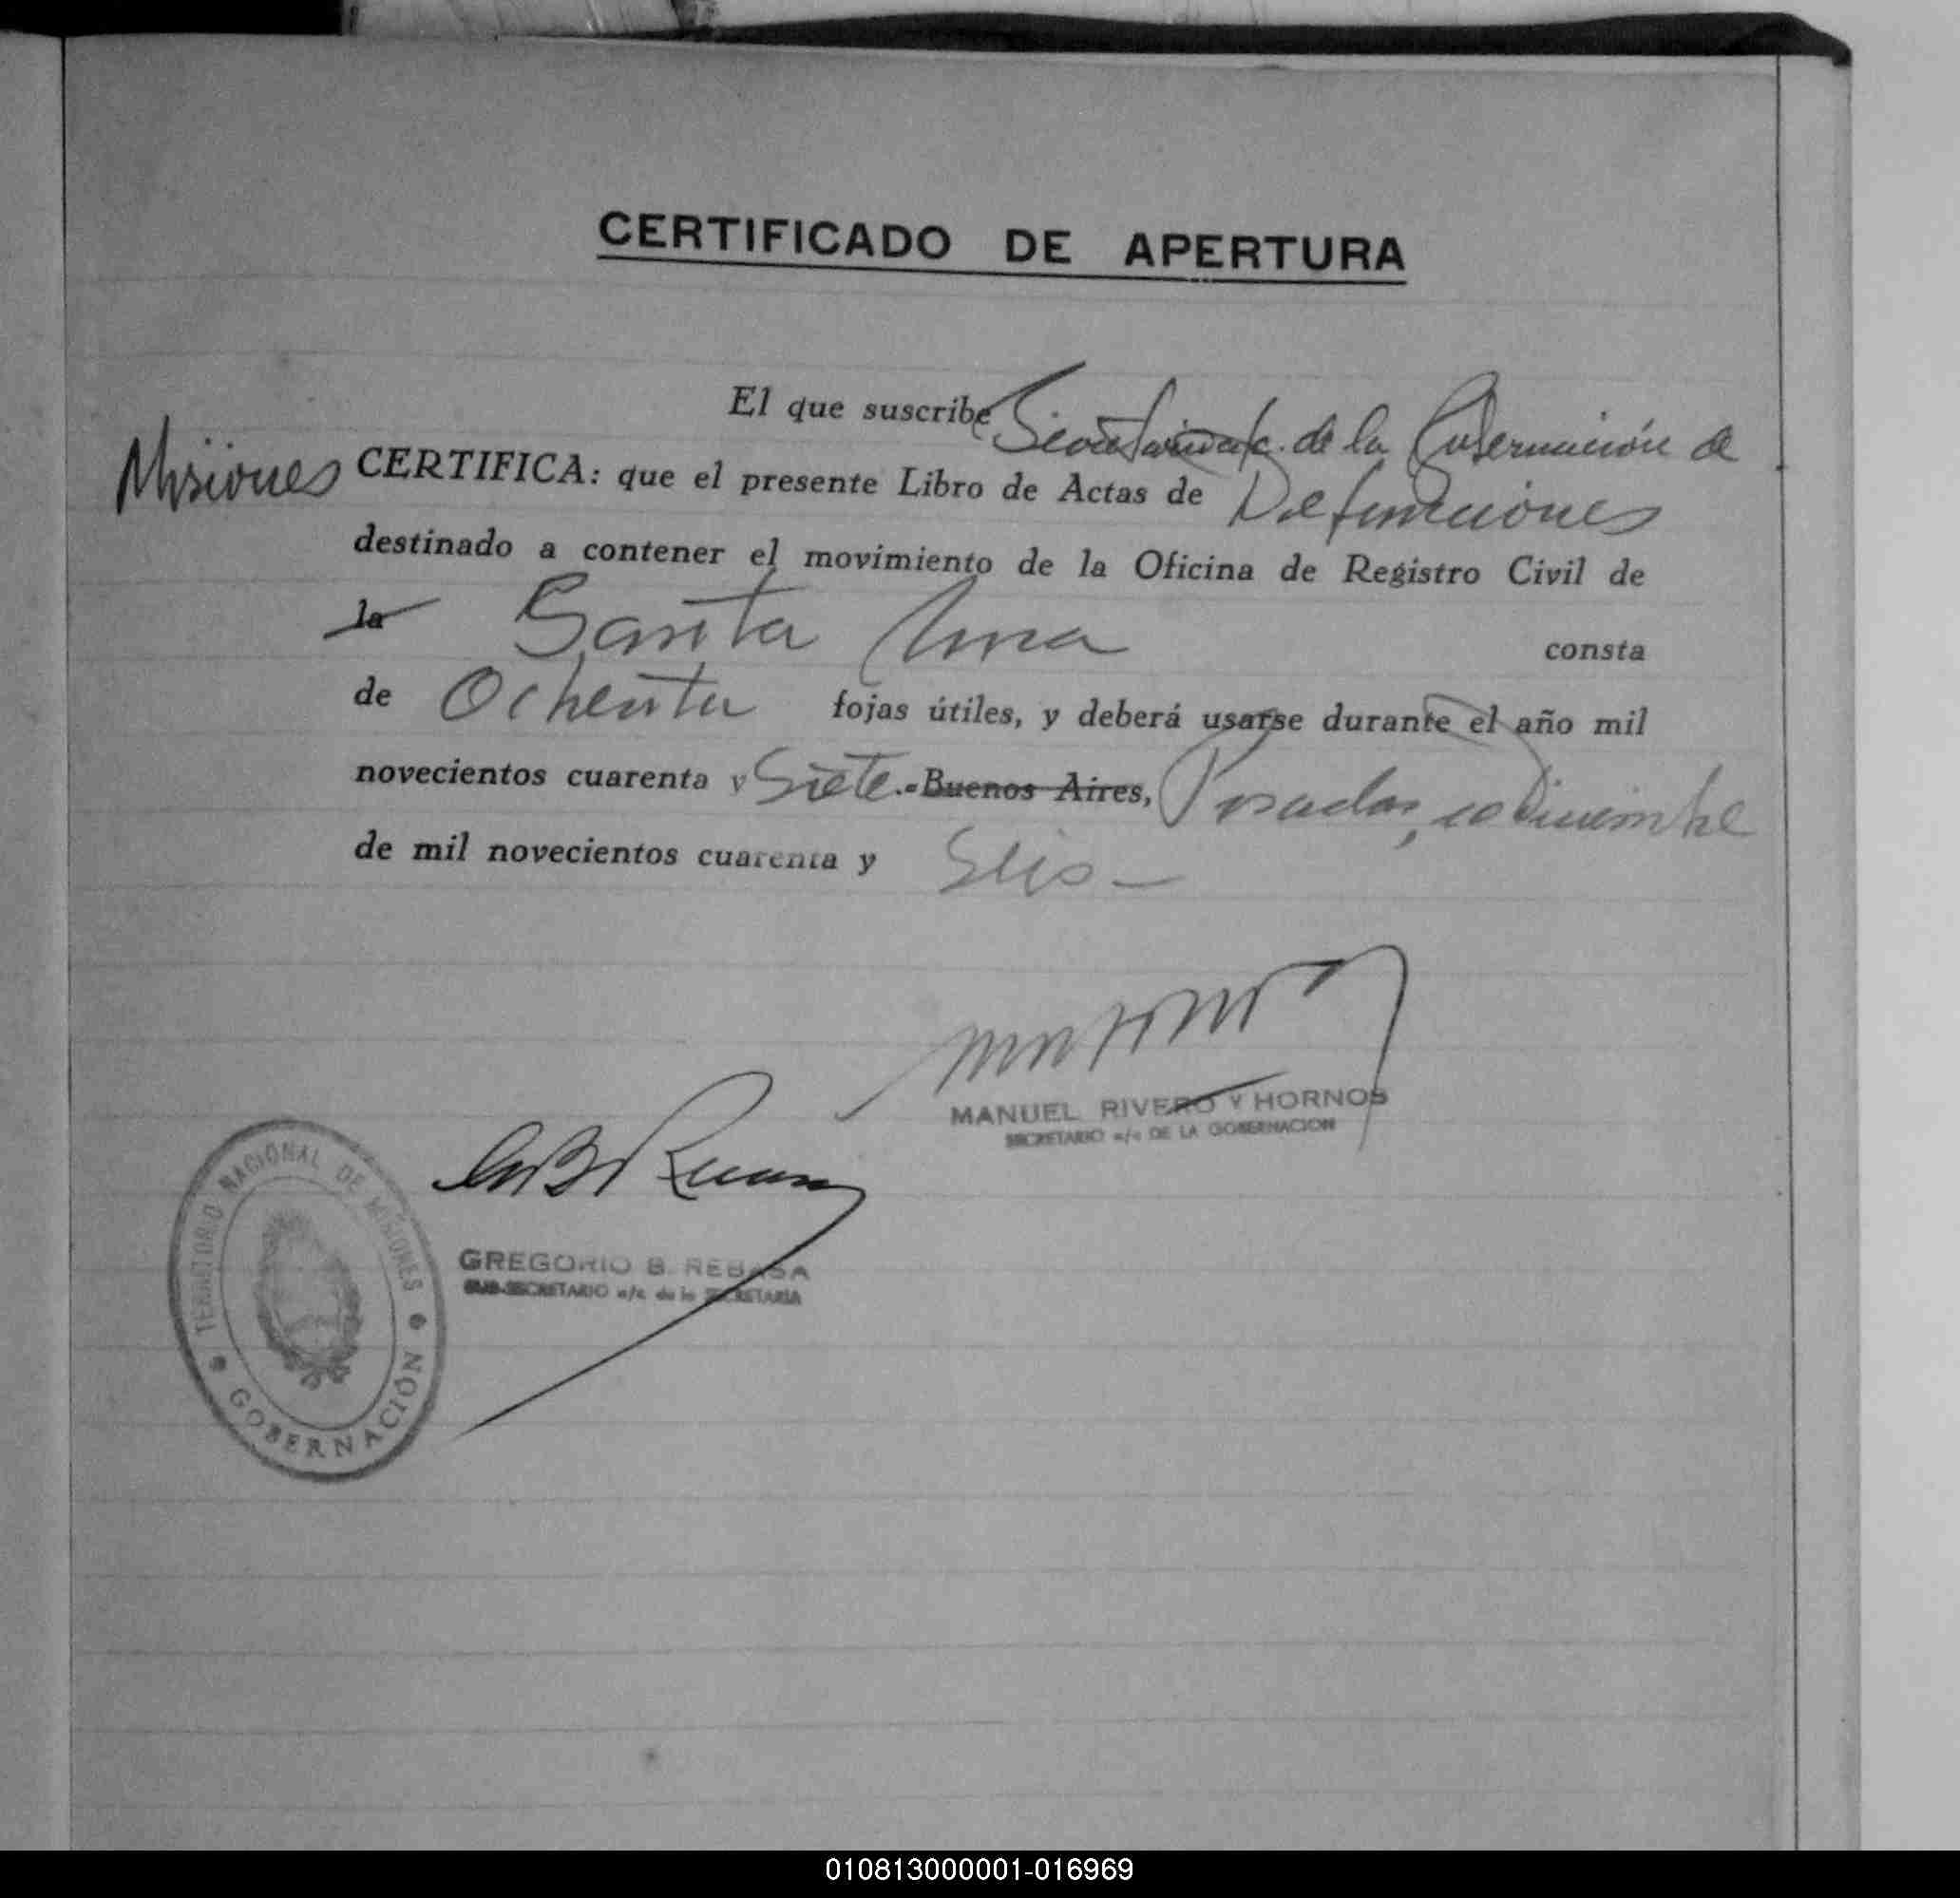 CERTIFICADO DE APERTURA
El que suscribe Secretario a/c. de la Gobernación de
Misiones CERTIFICA: que el presente Libro de Actas de Defunciones
destinado a contener el movimiento de la Oficina de Registro Civil de
la Santa Ana consta
de Ochenta fojas útiles, y deberá usarse durante el año mil
novecientos cuarenta y Siete.-Buenos Aires, Posadas, Diciembre
de mil novecientos cuarenta y Seis-
MANUEL RIVERO Y HORNOS
SECRETARIO a/c DE LA GOBERNACION
GREGORIO B. REBASA
SUB-SECRETARIO a/c de la SECRETARIA
TERRITORIO NACIONAL DE MISIONES
GOBERNACIÓN
010813000001-016969